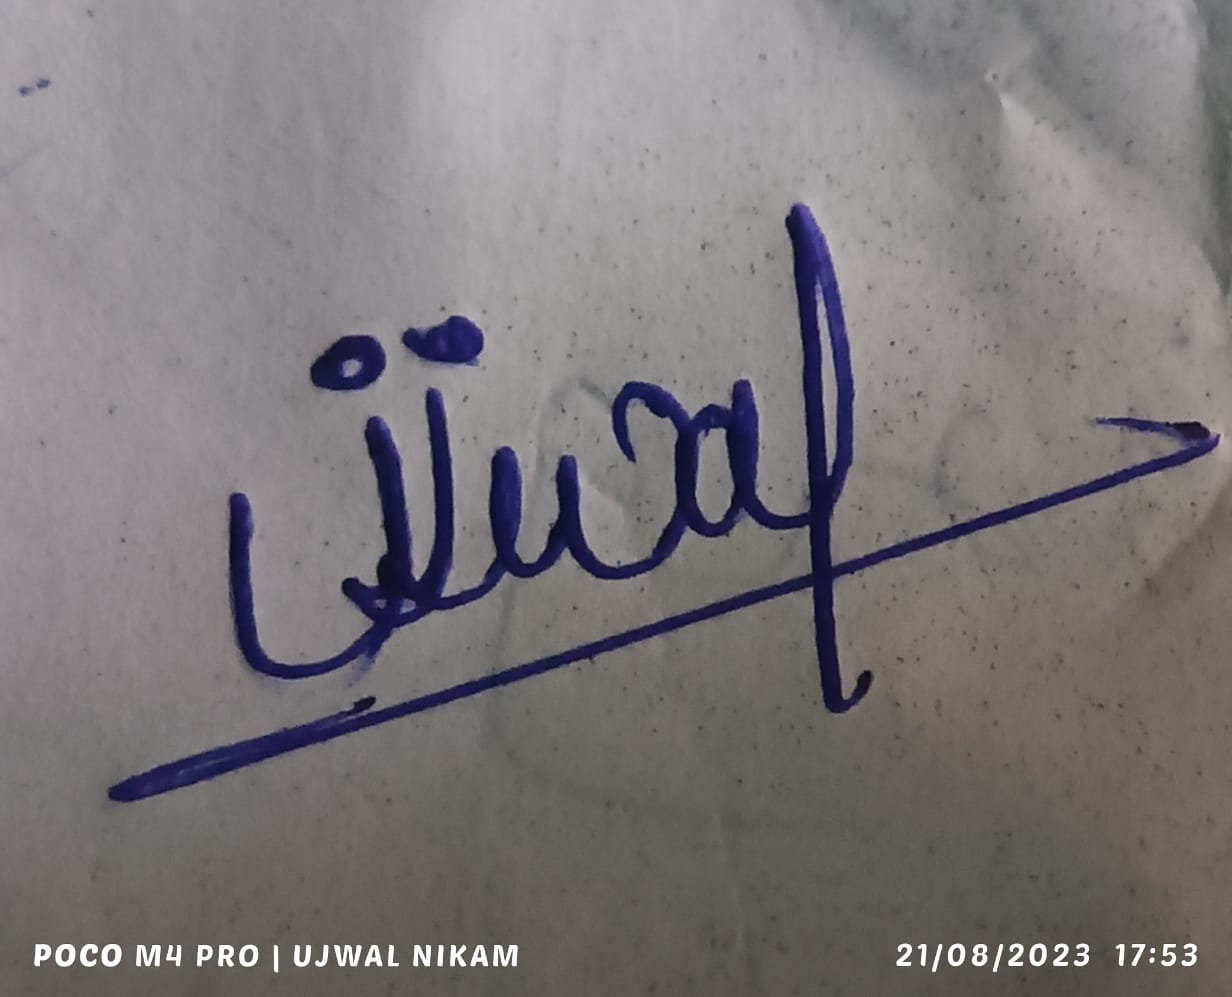 Ujwal
POCO M4 PRO | UJWAL NIKAM
21/08/2023 17:53